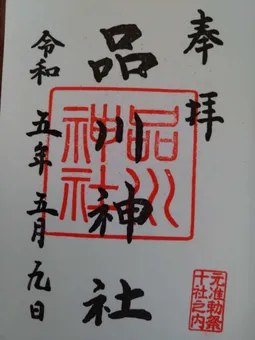 奉拝
品川神社
品川神社
令和五年五月九日
元准勅祭
十社之内